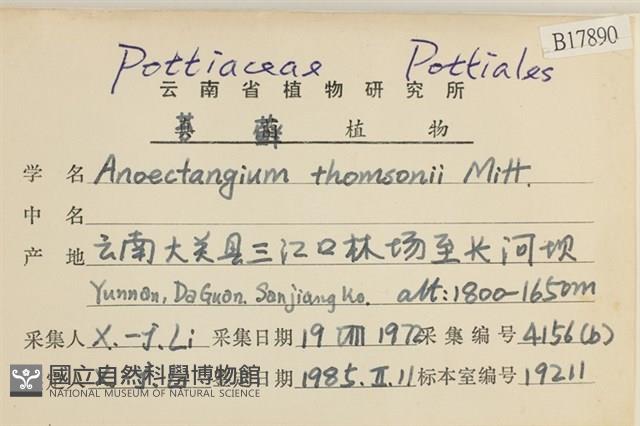 B17890
Pottiaceae Pottiales
云南省植物研究所
苔藓植物
学名 Anoectangium thomsonii Mitt.
中名
产地 云南大关县三江口林场至长河坝
Yunnan, DaGuan. Sanjiangko. alt: 1800-1650m
采集人 X.-J. Li 采集日期 19 VIII 1972 采集编号 4156(b)
日期 1985.II.11 标本室编号 19211
國立自然科學博物館
NATIONAL MUSEUM OF NATURAL SCIENCE